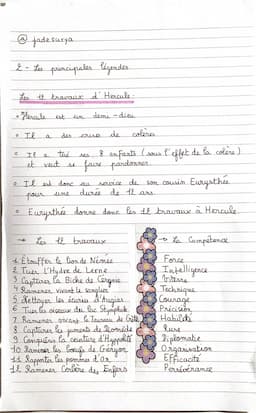 @ jadesurya
2 - Les principales légendes
Les 12 travaux d'Hercule:
• Hercule est un demi-dieu
• Il a des crises de colères
• Il a tué ses 8 enfants (sous l'effet de la colère)
et veut se faire pardonner.
• Il est donc au service de son cousin Eurysthée
pour une durée de 12 ans.
• Eurysthée donne donc les 12 travaux à Hercule.
→ Les 12 travaux
1. Étouffer le lion de Némée
2. Tuer l'Hydre de Lerne
3 Capturer la Biche de
4 Ramener vivant le sanglier
5 Nettoyer les écuries d'Augias
6 Tuer les oiseaux du lac Stymphale
7 Ramener vivant le Taureau de Crète
8 Capturer les juments de Diomède
9 Conquérir la ceinture d'Hippolyte
10 Ramener les boeufs de Géryon
11 Rapporter les pommes d'Or
12 Ramener Cerbère des Enfers
→ La Compétence
Force
Intelligence
Vitesse
Technique
Courage
Précision
Habileté
Ruse
Diplomatie
Organisation
Efficacité
Persévérance